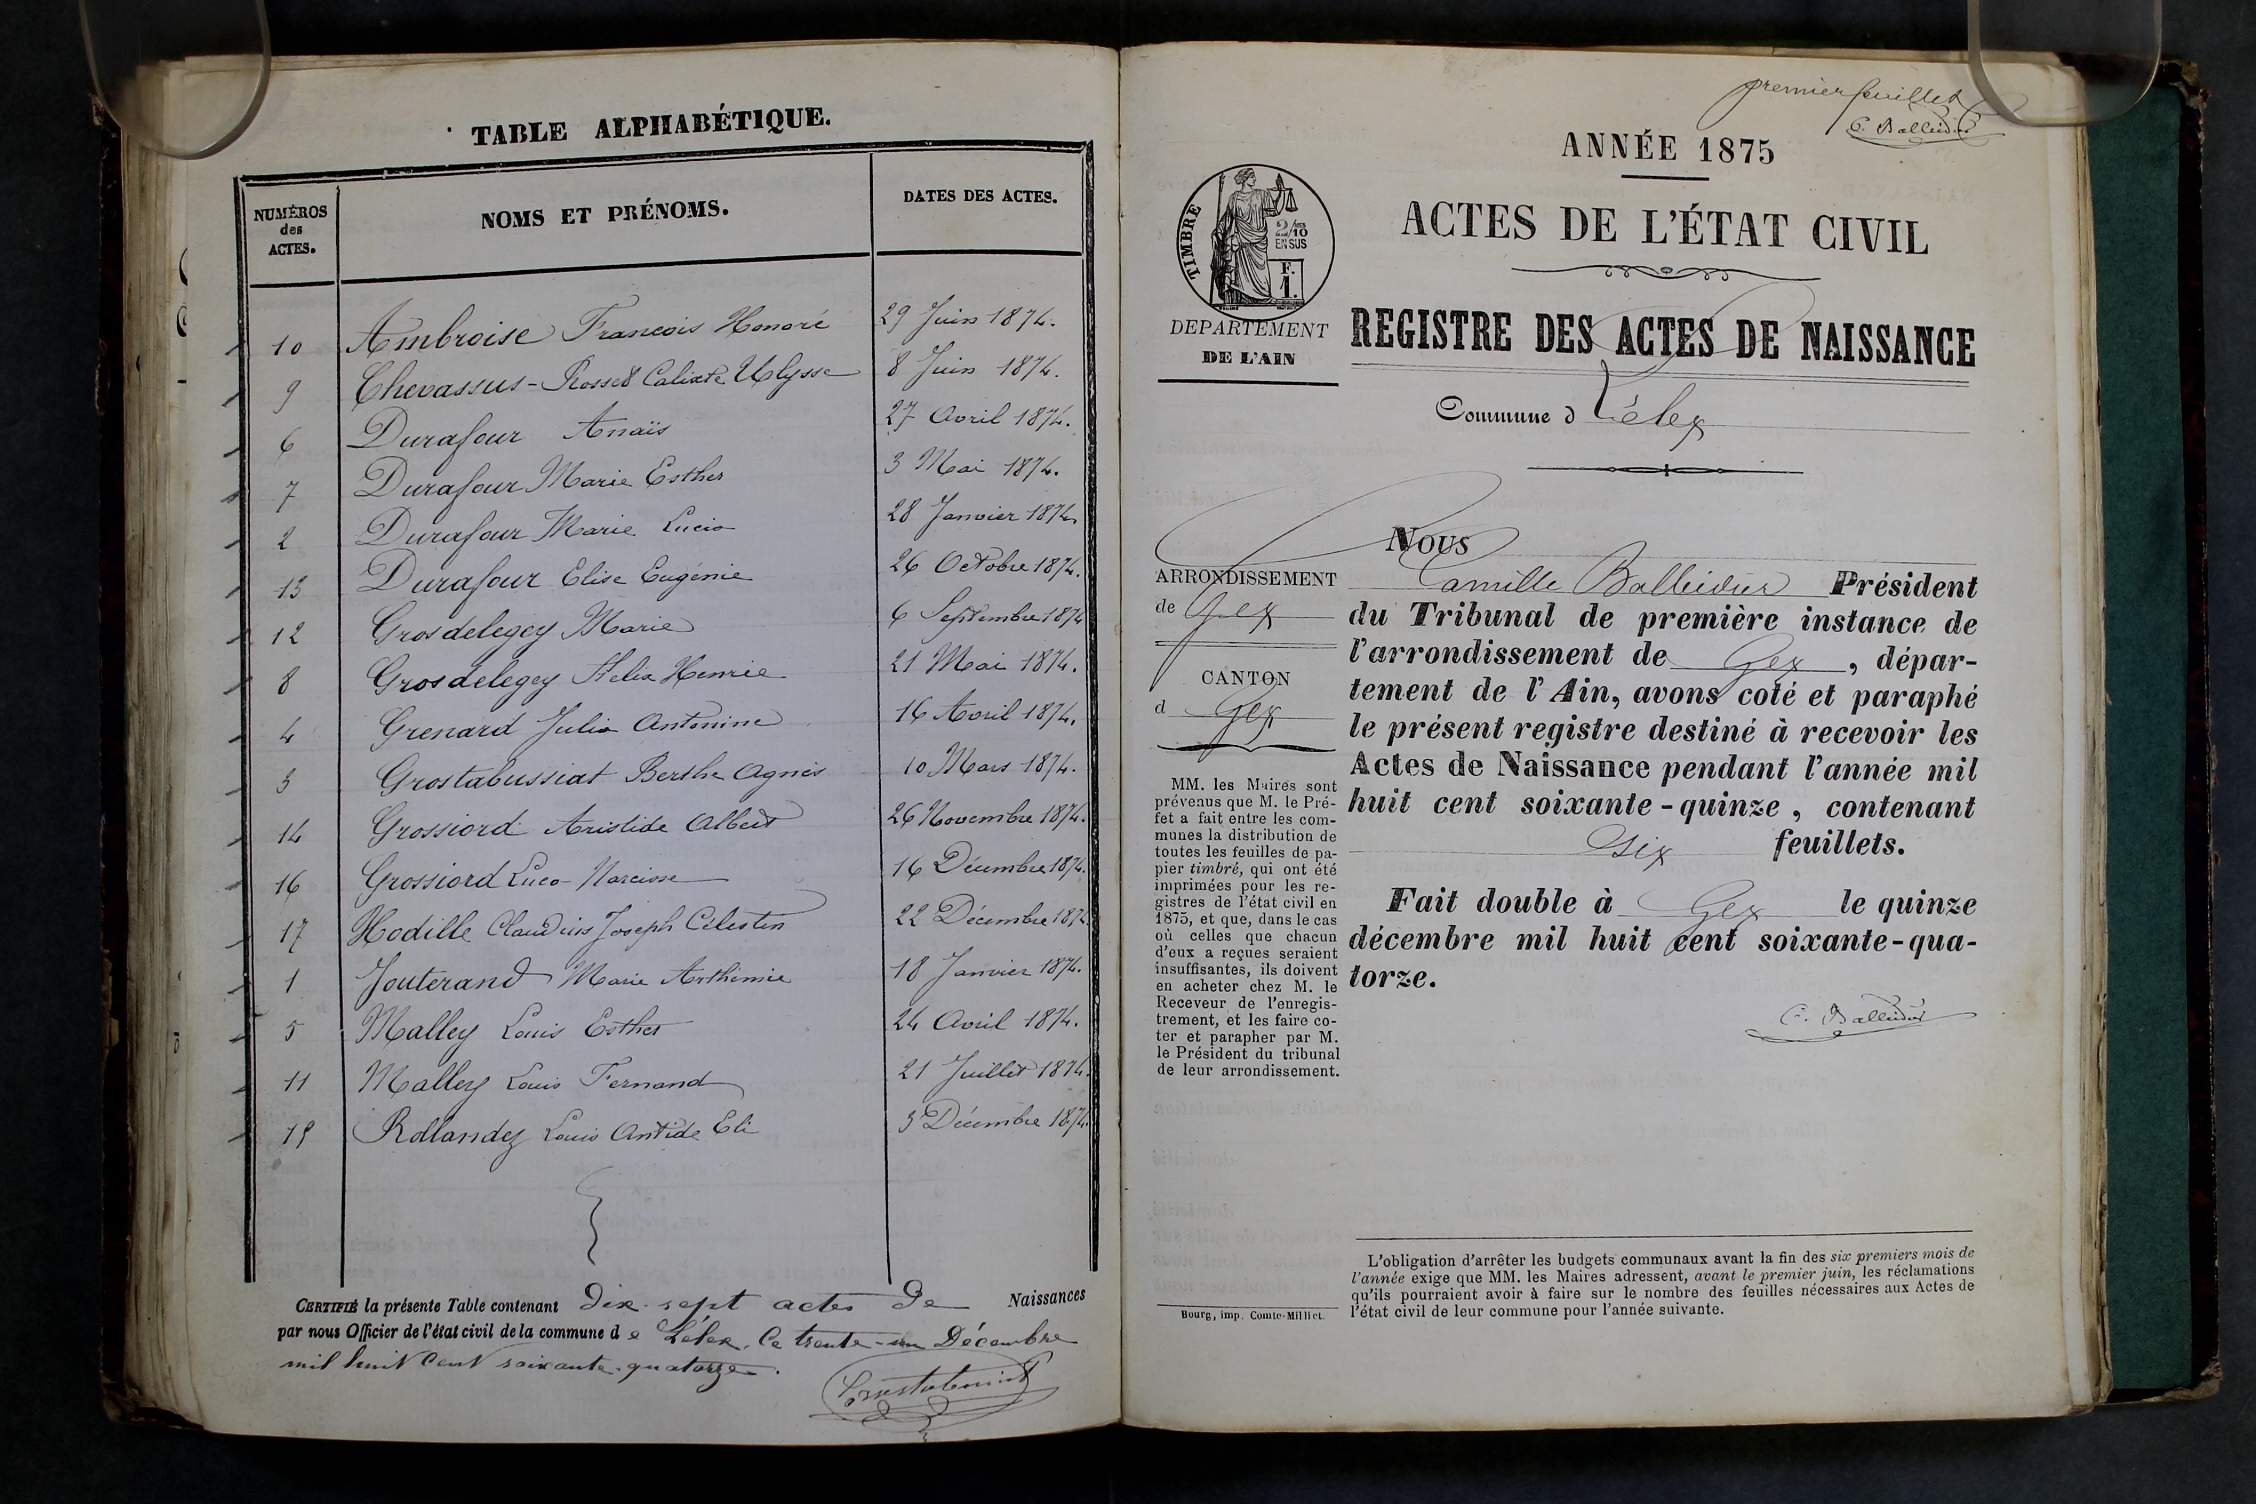 TABLE ALPHABÉTIQUE.
NUMÉROS des ACTES. NOMS ET PRÉNOMS. DATES DES ACTES.
10 Ambroise François Honoré 29 Juin 1874.
9 Chevassus-Rosset Calixte Ulysse 8 Juin 1874.
6 Durafour Anaïs 27 Avril 1874.
7 Durafour Marie Esther 3 Mai 1874.
2 Durafour Marie Lucie 28 Janvier 1874
13 Durafour Elise Eugénie 26 Octobre 1874.
12 Grosdelegey Marie 6 Septembre 1874
8 Grosdelegey Henrie 21 Mai 1874.
4 Grenard Julia Antonine 16 Avril 1874.
3 Grostabussiat Berthe Agnès 10 Mars 1874.
14 Grossiord Aristide Albert 26 Novembre 1874.
16 Grossiord Narcisse 16 Décembre 1874.
17 Hodille Claudius Joseph Célestin 22 Décembre 1874
1 Jouterand Marie Arthémie 18 Janvier 1874.
5 Malley Louis Esther 24 Avril 1874.
11 Malley Louis Fernand 21 Juillet 1874.
15 Rollandez Louis Antide Eli 5 Décembre 1874.
CERTIFIÉ la présente Table contenant dix-sept actes de Naissances
par nous Officier de l'état civil de la commune de Lélex. Ce trente-un Décembre
mil huit cent soixante-quatorze.
premier feuillet
C. Balleidier
ANNÉE 1875
ACTES DE L'ÉTAT CIVIL
TIMBRE
2/10 EN SUS
F. 1.
DEPARTEMENT
DE L'AIN
REGISTRE DES ACTES DE NAISSANCE
Commune d Lélex
ARRONDISSEMENT
de Gex
CANTON
d Gex
MM. les Maires sont
prévenus que M. le Pré-
fet a fait entre les com-
munes la distribution de
toutes les feuilles de pa-
pier timbré, qui ont été
imprimées pour les re-
gistres de l'état civil en
1875, et que, dans le cas
où celles que chacun
d'eux a reçues seraient
insuffisantes, ils doivent
en acheter chez M. le
Receveur de l'enregis-
trement, et les faire co-
ter et parapher par M.
le Président du tribunal
de leur arrondissement.
Nous
Camille Balleidier Président
du Tribunal de première instance de
l'arrondissement de Gex, dépar-
tement de l'Ain, avons coté et paraphé
le présent registre destiné à recevoir les
Actes de Naissance pendant l'année mil
huit cent soixante-quinze, contenant
six feuillets.
Fait double à Gex le quinze
décembre mil huit cent soixante-qua-
torze.
C. Balleidier
L'obligation d'arrêter les budgets communaux avant la fin des six premiers mois de
l'année exige que MM. les Maires adressent, avant le premier juin, les réclamations
qu'ils pourraient avoir à faire sur le nombre des feuilles nécessaires aux Actes de
l'état civil de leur commune pour l'année suivante.
Bourg, imp. Comte-Milliet.